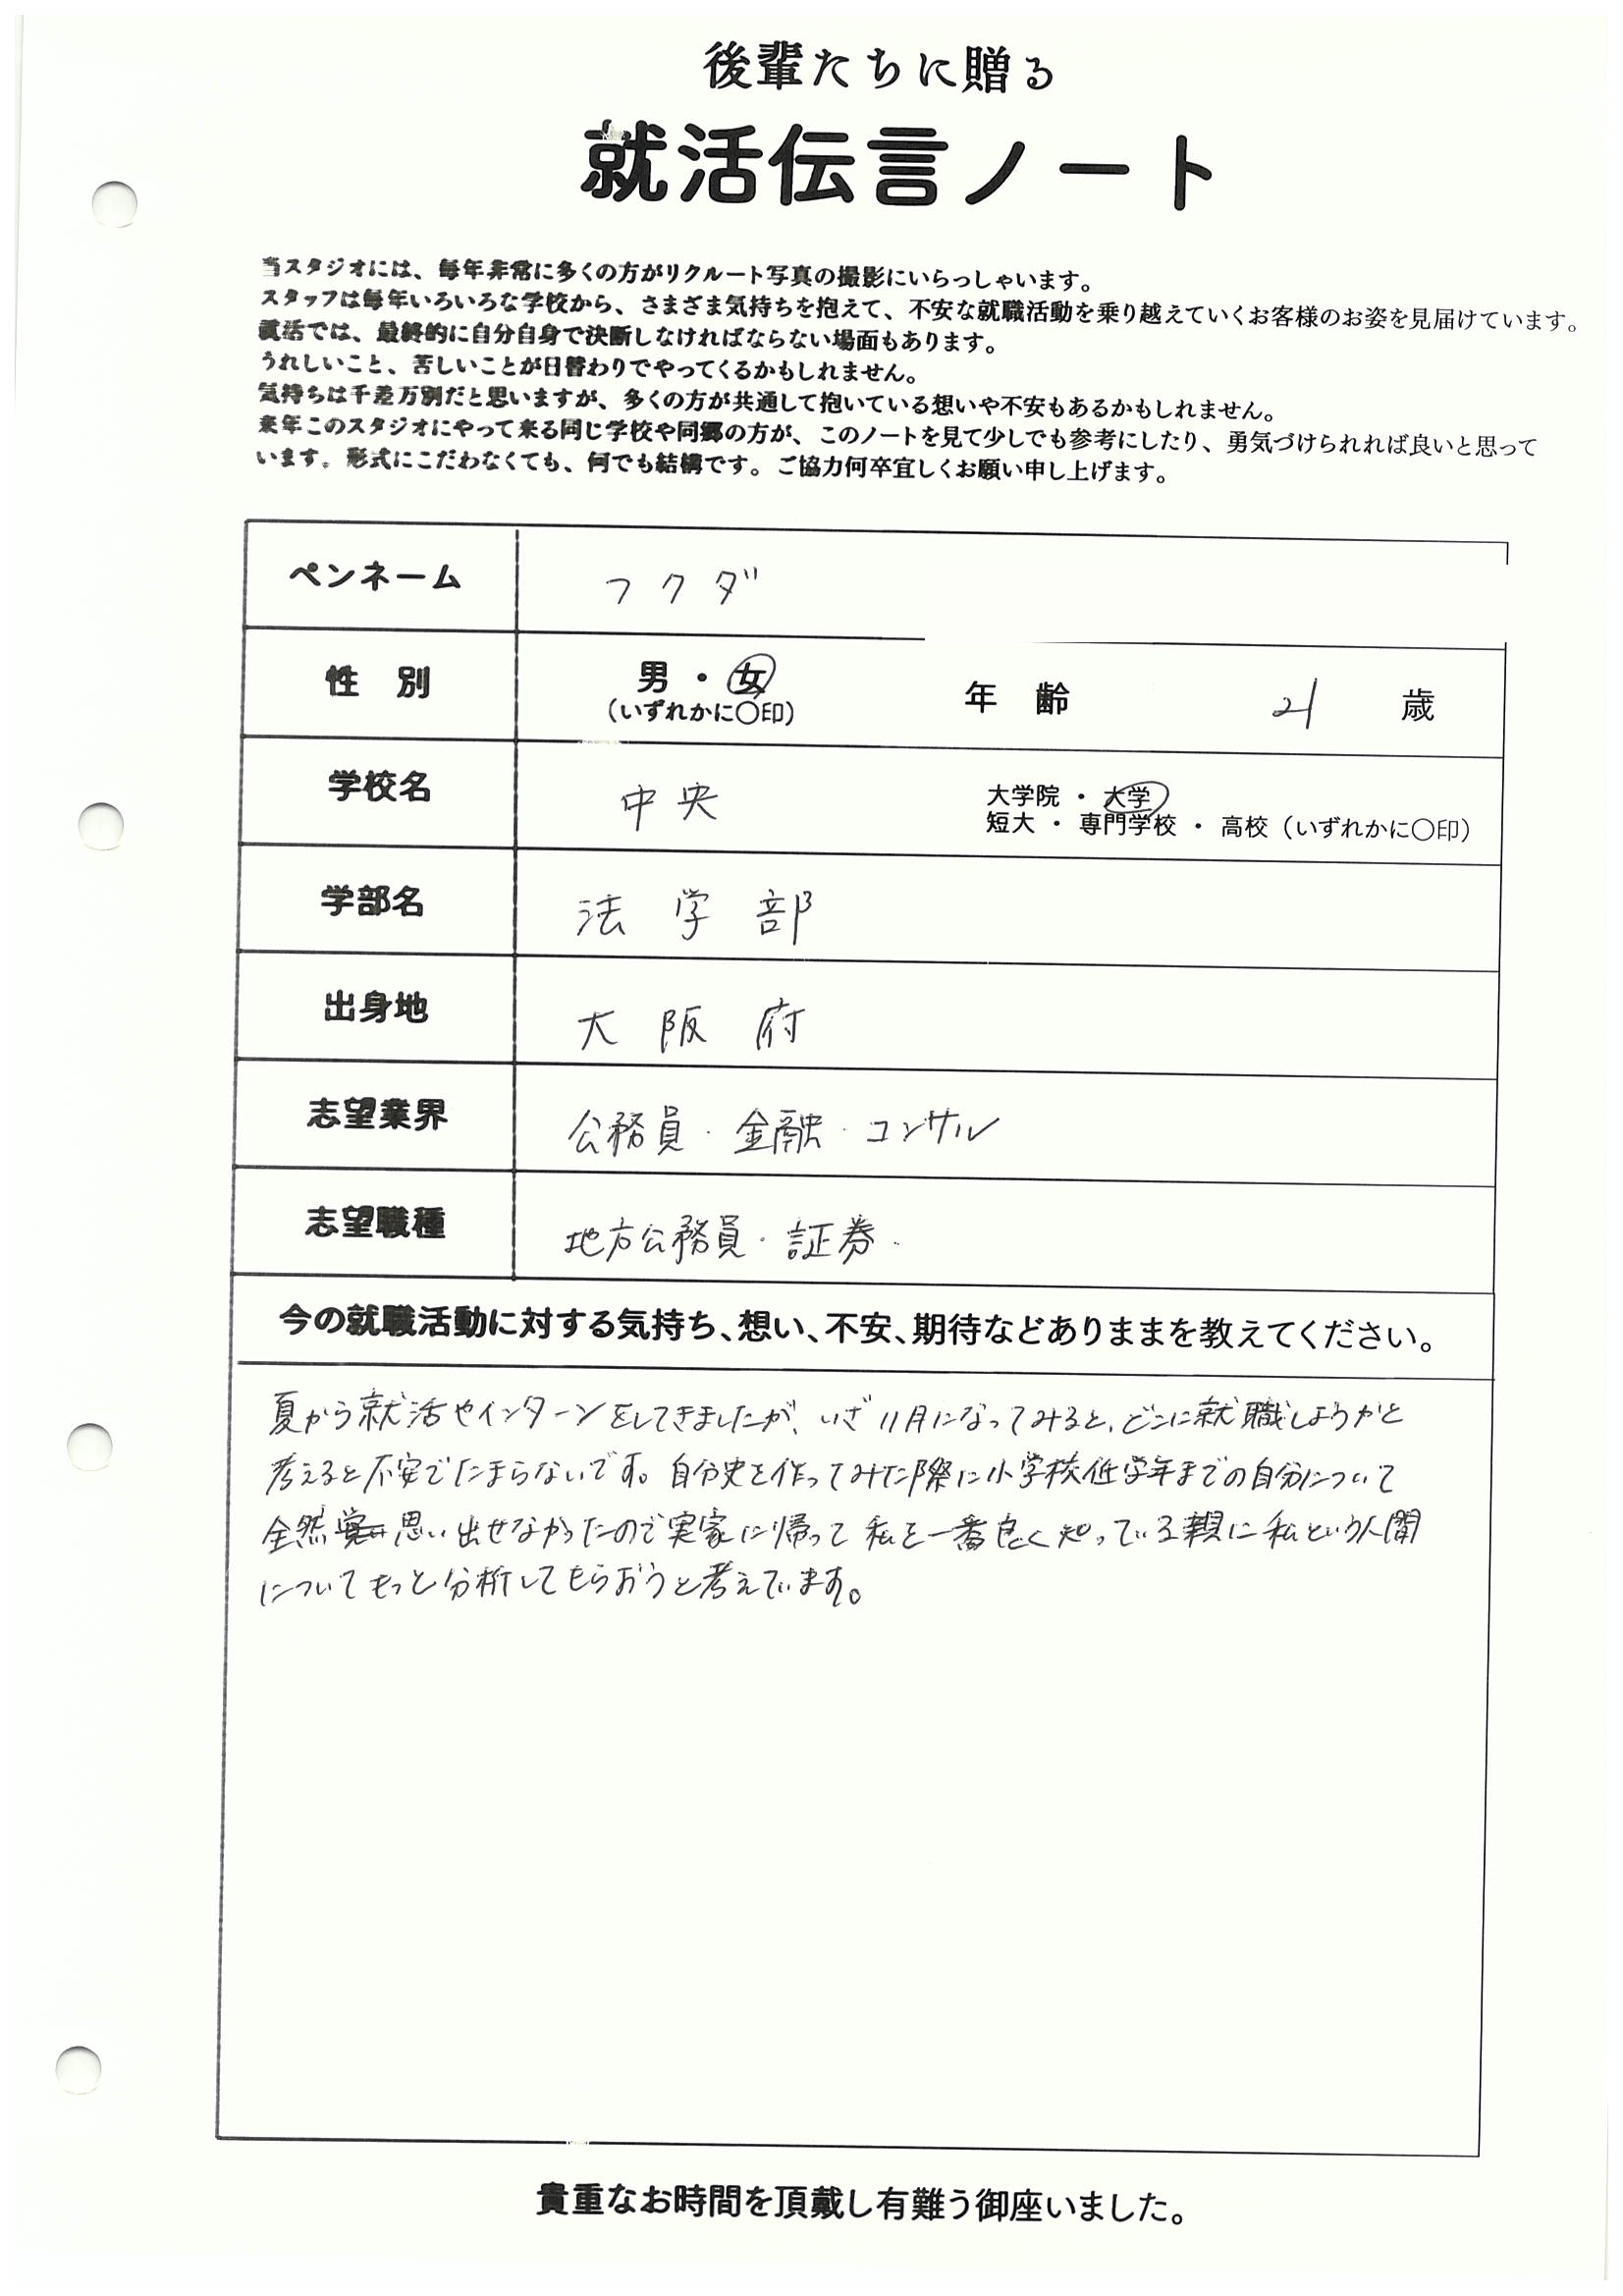 後輩たちに贈る
就活伝言ノート
当スタジオには、毎年非常に多くの方がリクルート写真の撮影にいらっしゃいます。
スタッフは毎年いろいろな学校から、さまざま気持ちを抱えて、不安な就職活動を乗り越えていくお客様のお姿を見届けています。
就活では、最終的に自分自身で決断しなければならない場面もあります。
うれしいこと、苦しいことが日替わりでやってくるかもしれません。
気持ちは千差万別だと思いますが、多くの方が共通して抱いている想いや不安もあるかもしれません。
来年このスタジオにやって来る同じ学校や同郷の方が、このノートを見て少しでも参考にしたり、勇気づけられれば良いと思って
います。形式にこだわなくても、何でも結構です。ご協力何卒宜しくお願い申し上げます。
ペンネーム フクダ
性 別 男・女 年 齢 21 歳
(いずれかに〇印)
学校名 中央 大学院 ・ 大学
短大 ・ 専門学校 ・ 高校(いずれかに〇印)
学部名 法学部
出身地 大阪府
志望業界 公務員・金融・コンサル
志望職種 地方公務員・証券・
今の就職活動に対する気持ち、想い、不安、期待などありままを教えてください。
夏から就活やインターンをしてきましたが、いざ11月になってみると、どこに就職しようかと
考えると不安でたまらないです。自分史を作ってみた際に小学校低学年までの自分について
全然思い出せなかったので実家に帰って私を一番良く知っている親に私という人間
についてもっと分析してもらおうと考えています。
貴重なお時間を頂戴し有難う御座いました。